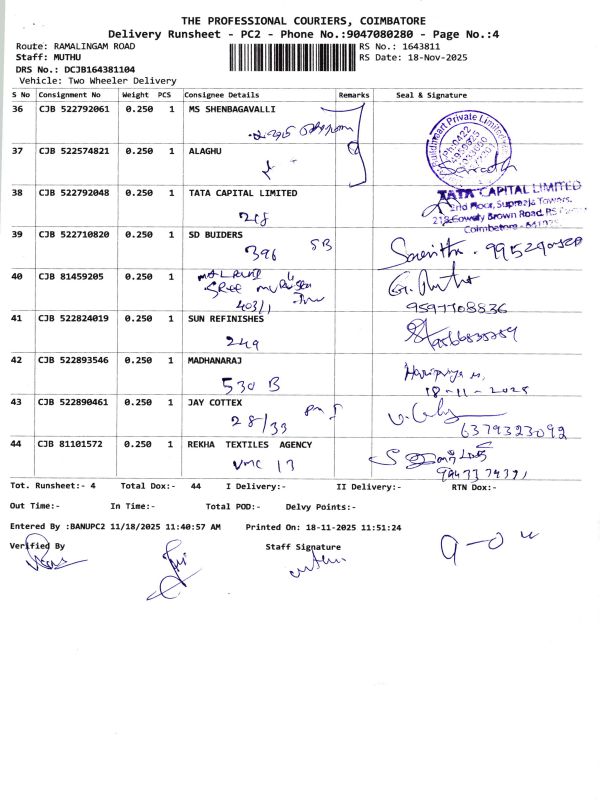 THE PROFESSIONAL COURIERS, COIMBATORE
Delivery Runsheet - PC2 - Phone No.:9047080280 - Page No.:4
Route: RAMALINGAM ROAD RS No.: 1643811
Staff: MUTHU RS Date: 18-Nov-2025
DRS No.: DCJB164381104
Vehicle: Two Wheeler Delivery
S No Consignment No Weight PCS Consignee Details Remarks Seal & Signature
36 CJB 522792061 0.250 1 MS SHENBAGAVALLI
37 CJB 522574821 0.250 1 ALAGHU
38 CJB 522792048 0.250 1 TATA CAPITAL LIMITED
218
TATA CAPITAL LIMITED
2nd Floor, Supreeja Towers,
Coimbatore
39 CJB 522710820 0.250 1 SD BUIDERS
396 SB
40 CJB 81459205 0.250 1
403/1
9597708836
41 CJB 522824019 0.250 1 SUN REFINISHES
249
42 CJB 522893546 0.250 1 MADHANARAJ
530 B
18-11-2025
43 CJB 522890461 0.250 1 JAY COTTEX
28/33
6379323092
44 CJB 81101572 0.250 1 REKHA TEXTILES AGENCY
VMC 17
Tot. Runsheet:- 4 Total Dox:- 44 I Delivery:- II Delivery:- RTN Dox:-
Out Time:- In Time:- Total POD:- Delvy Points:-
Entered By :BANUPC2 11/18/2025 11:40:57 AM Printed On: 18-11-2025 11:51:24
Verified By Staff Signature